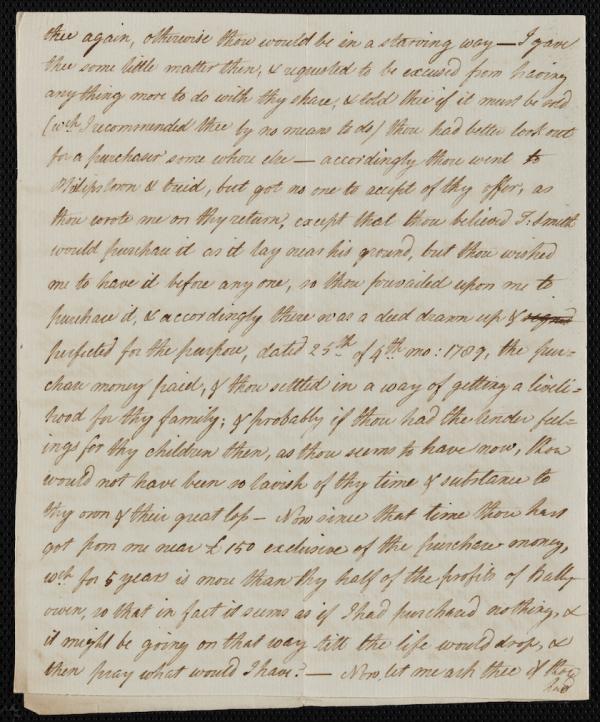 thee again, otherwise thou would be in a starving way — I gave
thee some little matter then, & requested to be excused from having
any thing more to do with thy share, & told thee if it must be sold
(wch I recommended thee by no means to do) thou had better look out
for a purchaser some where else — accordingly thou went to
& tried, but got no one to accept of thy offer, as
thou wrote me on thy return, except that thou believed T: Smith
would purchase it as it lay near his ground, but thou wished
me to have it before any one, so thou prevailed upon me to
purchase it, & accordingly there was a deed drawn up & signed
perfected for the purpose, dated 25th of 4th mo: 1789, the pur=
chase money paid, & thou settled in a way of getting a liveli=
hood for thy family; & probably if thou had the tender feel=
ings for thy children then, as thou seems to have now, thou
would not have been so lavish of thy time & substance to
thy own & their great loss — Now since that time thou hast
got from me near £150 exclusive of the purchase money,
wch for 5 years is more than thy half of the profits of Bally
owen, so that in fact it seems as if I had purchased nothing, &
it might be going on that way till the life would drop, &
then pray what would I have? — Now, let me ask thee if thou
had